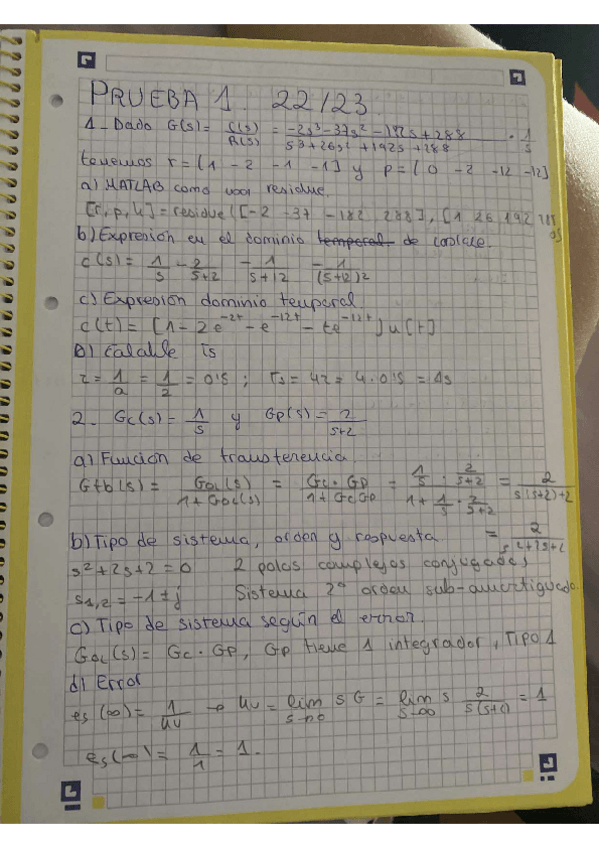 PRUEBA 1. 22/23.
1- Dado G(s)= C(s)/R(s) = (-2s³-37s²-182s+288)/(s³+26s²+192s+288) · 1/s
tenemos r=[1 -2 -1 -1] y p=[0 -2 -12 -12]
a) MATLAB como residue.
[r,p,k]=residue([-2 -37 -182 288],[1 26 192 288
b) Expresión en el dominio temporal de Laplace.
c(s)= 1/s - 2/(s+2) - 1/(s+12) - 1/(s+12)2
c) Expresión dominio temporal
c(t)=[1-2e^-2t - e^-12t - te^-12t] u[t]
Ts
= 1/a = 1/2 = 0'5 ; Ts=4z=4.0'5=
2. Gc(s)= 1/s y Gp(s)= 2/(s+2)
a) Función de transferencia.
Gtb(s)= GOL(s)/(1+GOL(s)) = Gc·Gp/(1+GcGp) = (1/s · 2/(s+2))/(1+ 1/s · 2/(s+2)) = 2/(s(s+2)+2)
b) Tipo de sistema, orden y respuesta = 2/(s²+2s+2)
s²+2s+2=0 2 polos complejos conjugados
s1,2=-1±j Sistema 2º orden sub-amortiguado.
c) Tipo de sistema según el error.
GOL(s)= Gc·Gp, Gp tiene 1 integrador, TIPO 1
d) Error
es(∞)= 1/kv → kv= lim s→0 s G = lim s→0 s 2/(s(s+2)) = 1
es(∞)= 1/1 = 1.